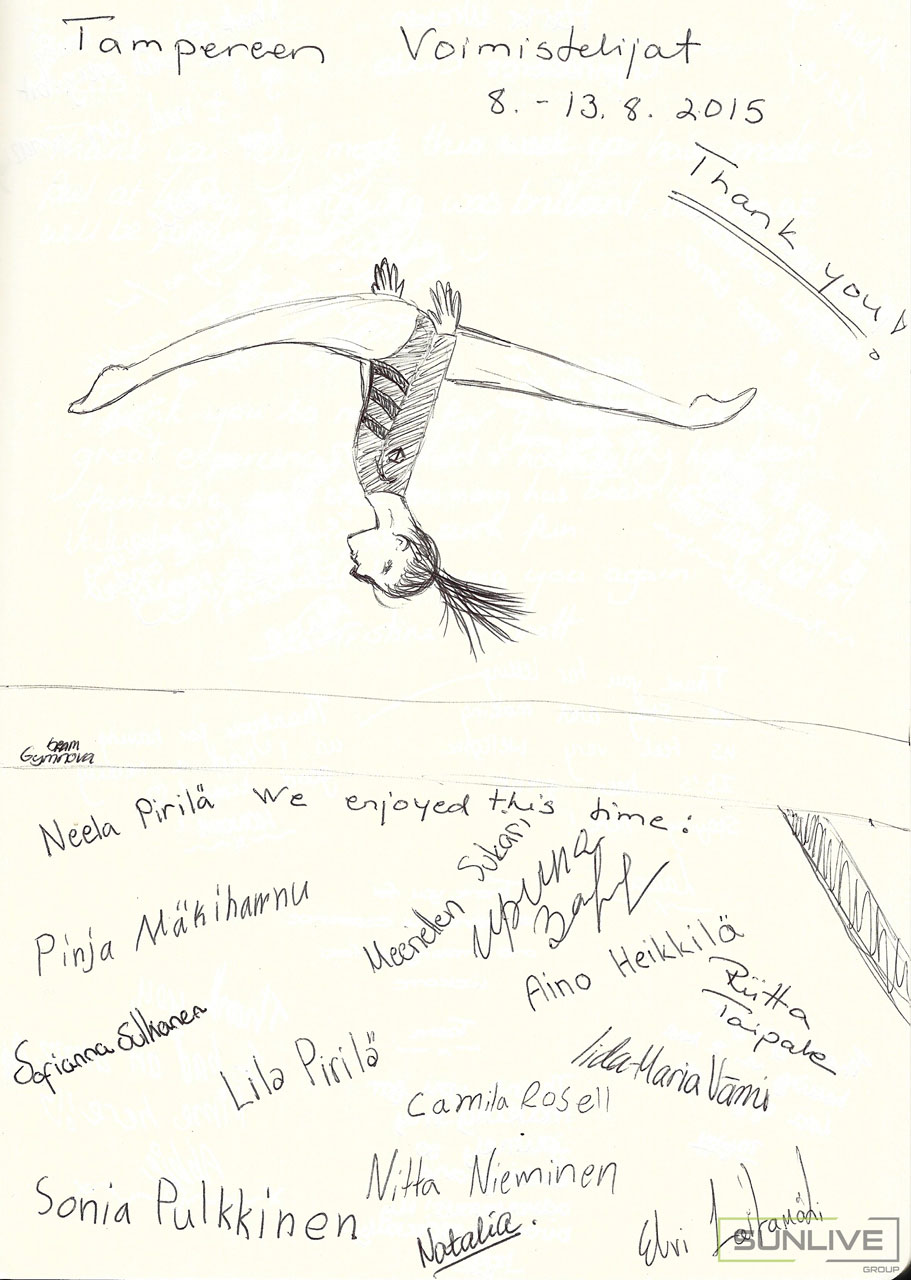 Tampereen Voimistelijat
8. - 13. 8. 2015
Thank you!
beam
Gymnova
We enjoyed this time:
Neela Pirilä
Pinja Mäkihannu
Meeriellen Sukari
Ирина
Aino Heikkilä
Riitta
Taipale
Sofianna Sulkanen
Lila Pirilä
Iida-Maria Vämi
Camila Rosell
Nitta Nieminen
Sonia Pulkkinen
Natalia.
Elvi
SUNLIVE
GROUP